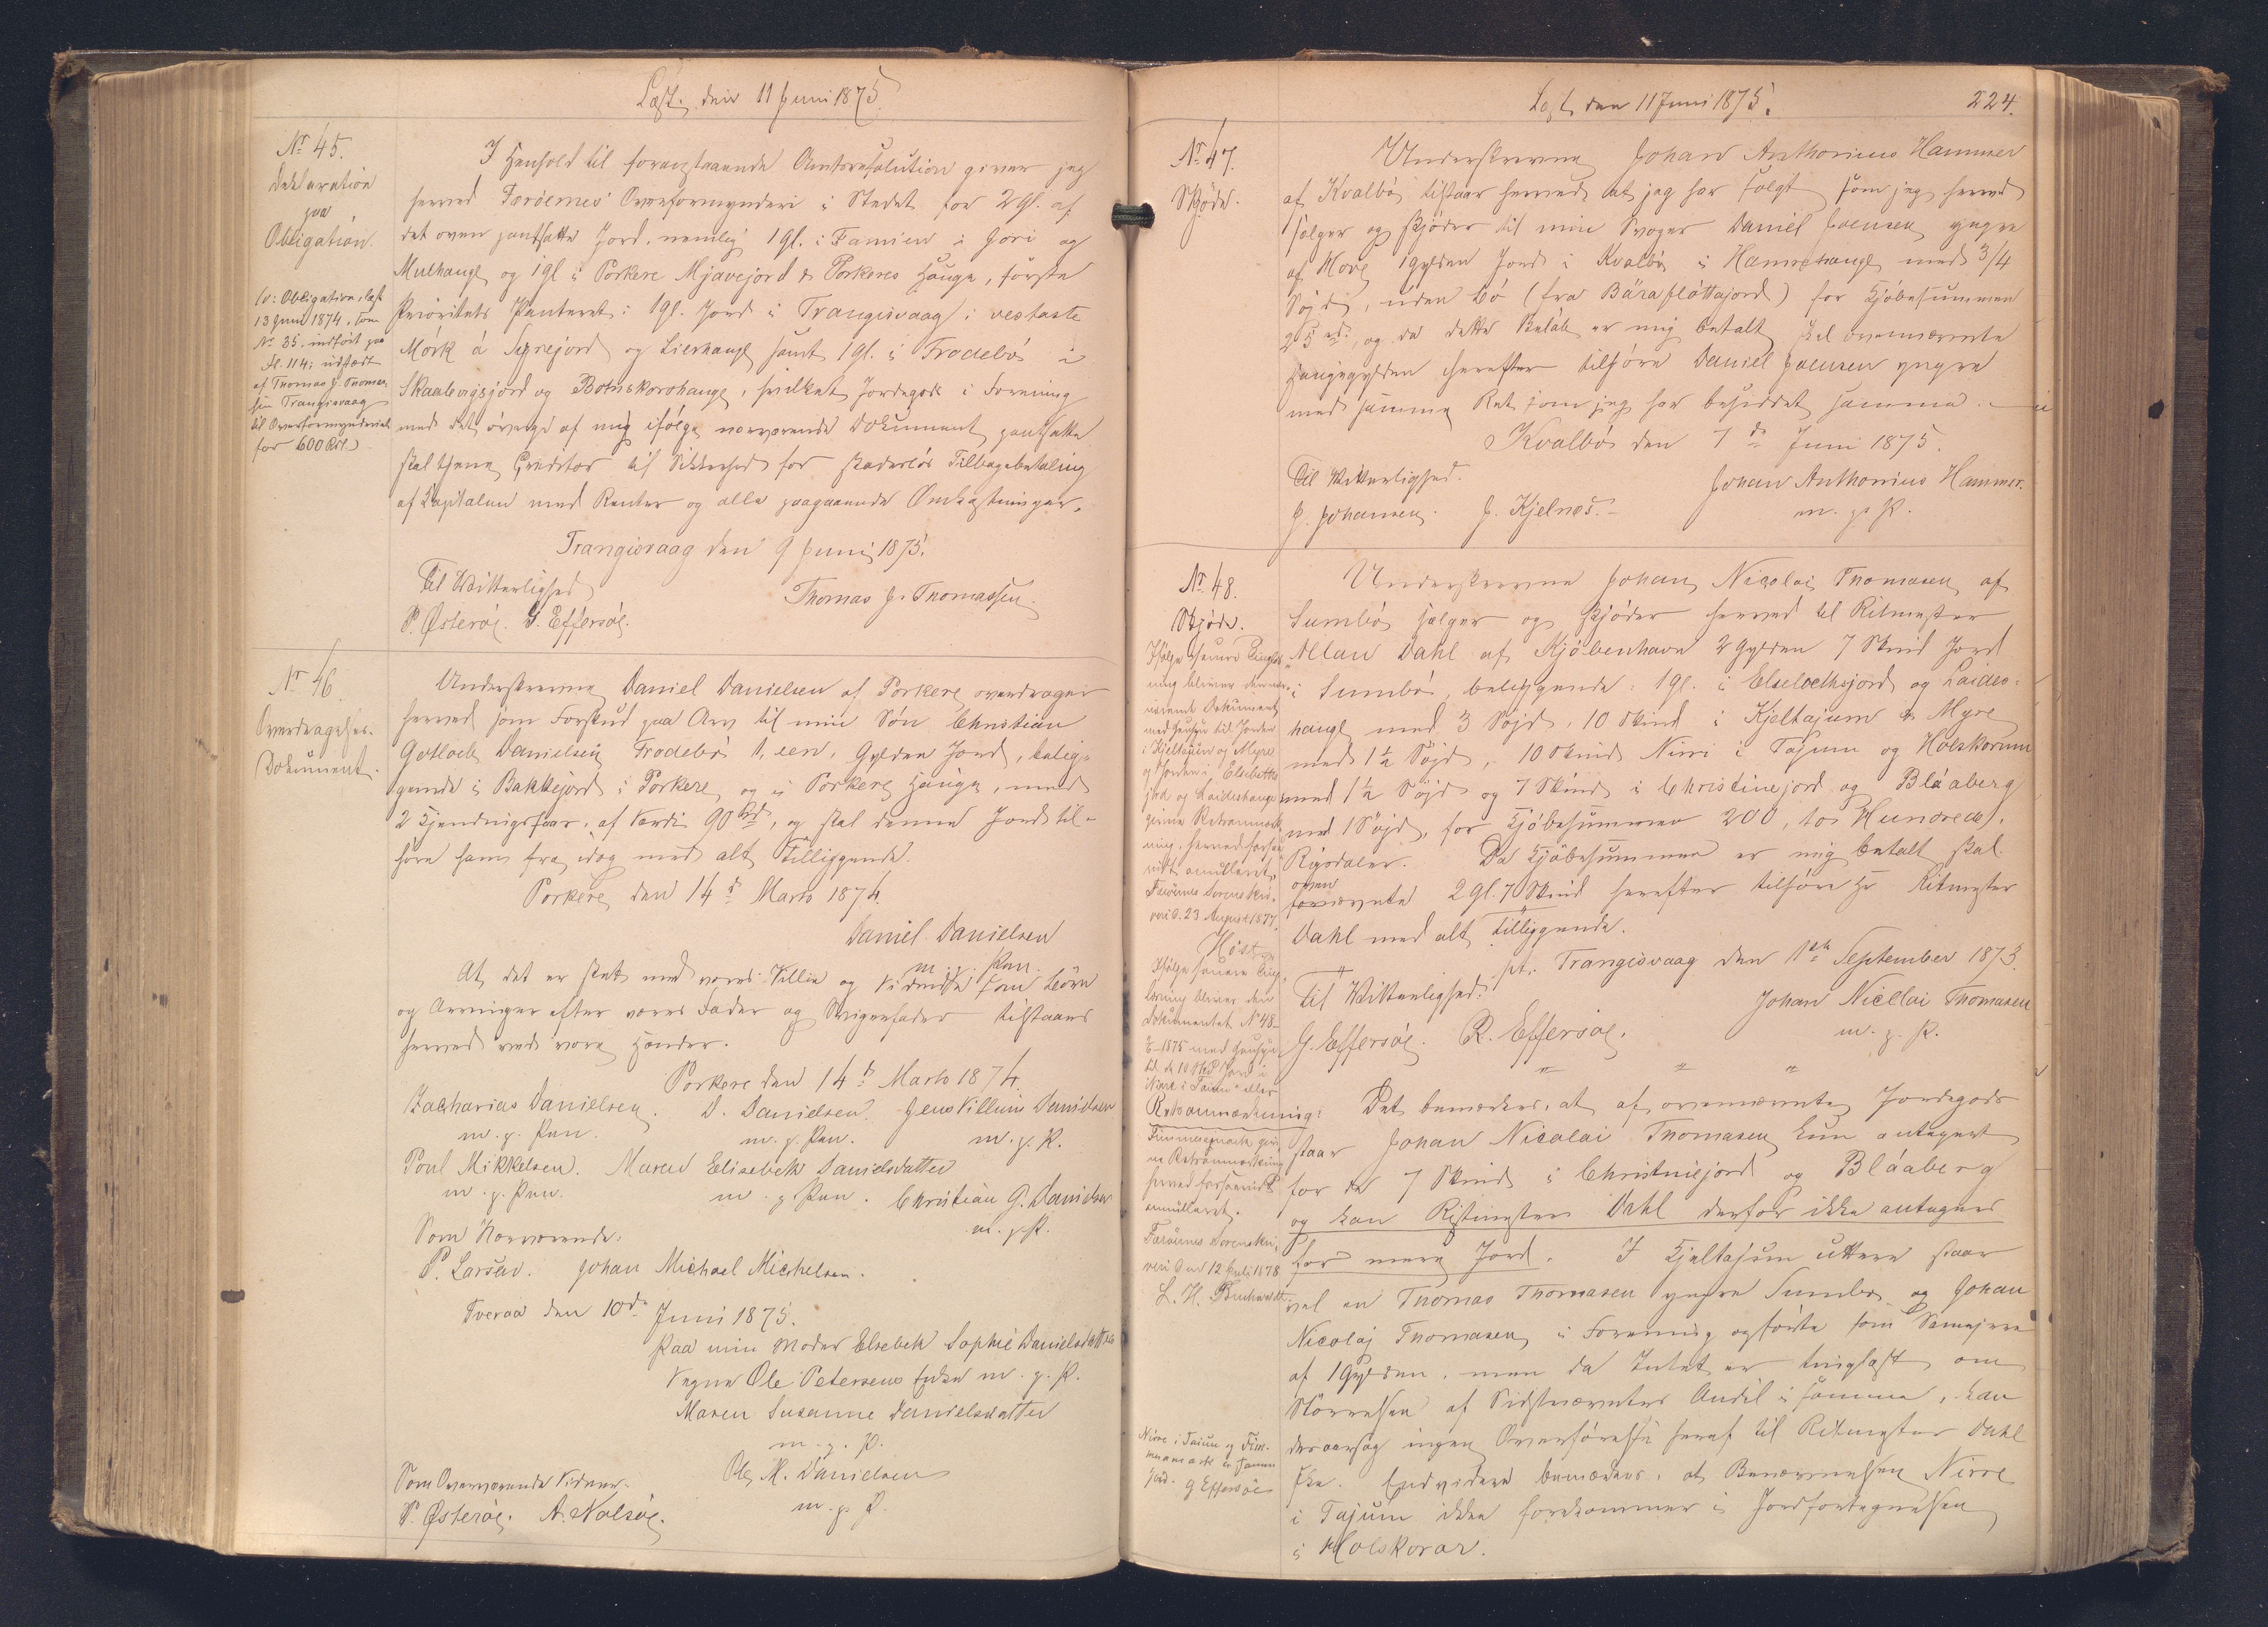 Læst den 11 Juni 1875
Nr 45.
Deklaration
paa
Obligation.
(o: Obligation, læst
13 Juni 1874, som
Nr 35, indført paa
fl. 114; udstedt
af Thomas J. Thomas-
sen Trangisvaag
til Overformynderiet
for 600 Rd.)
I Henhold til foranstaaende Amtsresolution giver jeg
herved Færøernes Overformynderi i Stedet for 2 gl. af
det oven pantsatte Jord, nemlig 1 gl. i Famien i Høri og
Mulhauge og 1 gl i Porkere Mjavejord & Porkeres Hauge, første
Prioritets Panteret i 1 gl. Jord i Trangisvaag i vestaste
Mørk á Signejord og Lierhauge samt 1 gl. i Frodebø i
Skaalevigsjord og Botnskorohauge, hvilket Jordegods i Forening
med det øvrige af mig ifølge nærværende Dokument pantsatte
skal tjene Creditor til Sikkerhed for skadesløs Tilbagebetaling
af Kapitalen med Renter og alle paagaaende Omkostninger.
Trangisvaag den 9 Juni 1875.
Til Vitterlighed
Thomas J. Thomassen
P. Østerøe. G. Effersøe.
Nr 46.
Overdragelses-
Dokument.
Underskrevne Daniel Danielsen af Porkere overdrager
herved som Forskud paa Arv til min Søn Christian
Gotlieb Danielsen Frodebø 1, een, Gylden Jord, belig-
gende i Bakkejord i Porkere og i Porkere Hauge, med
2 Kjendningsfaar, af Værdi 90 Rd, og skal denne Jord til-
høre ham fra idag med alt Tilliggende.
Porkere den 14de Marts 1874.
Daniel Danielsen
m. f. Pen.
At det er skeet med vores Villie og Vidende som Børn
og Arvinger efter vores Fader og Svigerfader tilstaaes
herved med vore Hænder.
Porkere den 14de Marts 1874.
Zacharias Danielsen. D. Danielsen. Jens Villum Danielsen
m. f. Pen. m. f. Pen. m. f. P.
Poul Mikkelsen. Maren Elisebeth Danielsdatter
m. f. Pen. m. f. Pen. Christian G. Danielsen
m. f. P.
Som Nærværende:
P. Larsen. Johan Michael Michelsen.
Tveraa den 10de Juni 1875.
Paa min Moder Elsebeth Sophie Danielsdatters
Vegne Ole Petersens Enke m. f. P.
Maren Susanne Danielsdatter
m. f. P.
Ole M. Danielsen
m. f. P.
Som Overværende Vidner.
P. Østerøe. A. Nolsøe.
Læst den 11 Juni 1875.
224.
Nr 47.
Skjøde.
Underskrevne Johan Anthonius Hammer
af Kvalbø tilstaar herved at jeg har solgt som jeg herved
sælger og skjøder til min Svoger Daniel Joensen yngre
af Hove 1 Gylden Jord i Kvalbø i Hamrehauge med 3/4
Søjd, uden Bø (fra Bárafløttajord) for Kjøbesummen
25 rd., og da dette Beløb er mig betalt skal ovennævnte
Haugegylden herefter tilhøre Daniel Joensen yngre
med samme Ret som jeg har besiddet samme.
Kvalbø den 7de Juni 1875.
Til Vitterlighed.
Johan Anthonius Hammer.
J. Johansen. J. Kjelnæs.
m. f. P.
Nr 48.
Skjøde.
Ifølge senere Tinglæs-
ning bliver denne
med Hensyn til Jorden
i Kjeltajum og Myre
og Jorden i Elsebeths
jord og Laideshauge
givne Retsanmærk-
ning, herved forsaa-
vidt annulleret.
Færøernes Sorenskri-
veri d. 23 August 1877.
Høst
Ifølge senere Ting-
læsning bliver den
Dokumentet Nr 48-
1875 med Hensyn
til de 10 Skd Jord i
"Nirre i Tajum" eller
Finmannark giv-
ne Retsanmærkning
herved forsaavidt
annulleret.
Færøernes Sorenskri-
veri den 12 Juli 1878
L. H. Buchwaldt
Nirre i Tajum og Fin-
manmark er samme
Jord. G Effersøe
Underskrevne Johan Nicolai Thomasen af
Sumbø sælger og skjøder herved til Ritmester
Allan Dahl af Kjøbenhavn 2 Gylden 7 Skind Jord
i Sumbø, beliggende: 1 gl. i Elsebethsjord og Laides-
hauge med 3 Søjd, 10 Skind i Kjeltajum & Myre
med 1½ Søjd, 10 Skind Nirri i Tajum og Holskorum
med 1½ Søjd og 7 Skind i Christinejord og Bláaberg
med 1 Søjd, for Kjøbesummen 200, to Hundrede,
Rigsdaler. Da Kjøbesummen er mig betalt skal
oven
fornævnte 2 gl. 7 Skind herefter tilhøre Hr Ritmester
Dahl med alt Tilliggende.
pt. Trangisvaag den 1ste September 1873.
Til Vitterlighed:
Johan Nicolai Thomasen
G. Effersøe. R. Effersøe.
m. f. P.
Retsanmærkning: Det bemærkes, at af ovennævnte Jordegods
staar Johan Nicolai Thomasen kun antegnet
for de 7 Skind i Christinejord og Bláaberg
og kan Ritmester Dahl derfor ikke antegnes
for mere Jord. I Kjeltajum uttere staar
vel en Thomas Thomasen yngre Sumbø og Johan
Nicolaj Thomasen i Forening opførte som Sameiere
af 1 Gylden, men da Intet er tinglæst om
Størrelsen af Sidstnævntes Andel i samme, kan
desaarsag ingen Overførelse heraf til Ritmester Dahl
ske. Endvidere bemærkes, at Benævnelsen Nirre
i Tajum ikke forekommer i Jordfortegnelsen
i Holskorar.